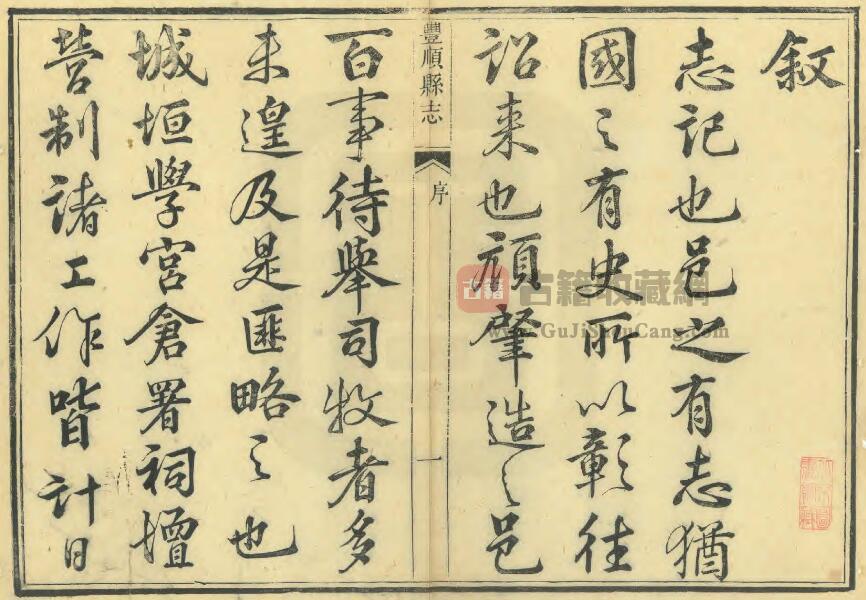 叙
志記也邑之有志猶
國之有史所以彰往
詔来也顧肇造之邑
豐順縣志
序
一
百事待舉司牧者多
未遑及是匪略之也
城垣學宮倉署祠壇
营制諸工作皆計日
古籍
古籍收藏網
www.GuJiShouCang.com